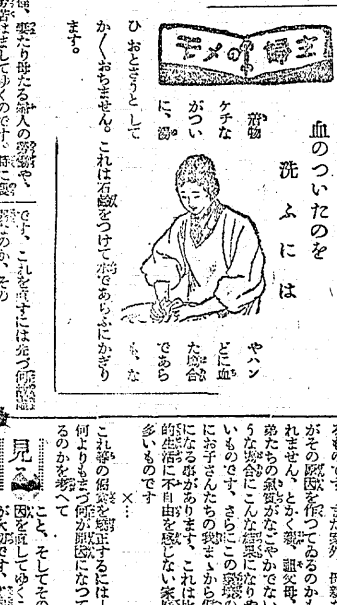 主婦のメモ
血のついたのを
洗ふには
着物やハン
ケチなどに血
がついた場合
に、湯であら
ひおとさうとしても、な
か〳〵おちません。これは石鹼をつけて水であらふにかぎり
ます。
妻たり母たる婦人の
です、これを直すには先づ何
がその原因を作つてゐるのかも
れません、とかく親、祖父母、
弟たちの氣質がなごやかでない
うな場合にこんな結果になり
いものです、さらにこの
にお子さんたちの我まゝから
になる事があります、これは
的生活に不自由を感じない家庭
多いものです
×…
これ等の偏食を矯正するには
何よりもまづ何が原因になつて
るのかを考へて
見
こと、そしてその
因を直してゆくこ
が大切です、